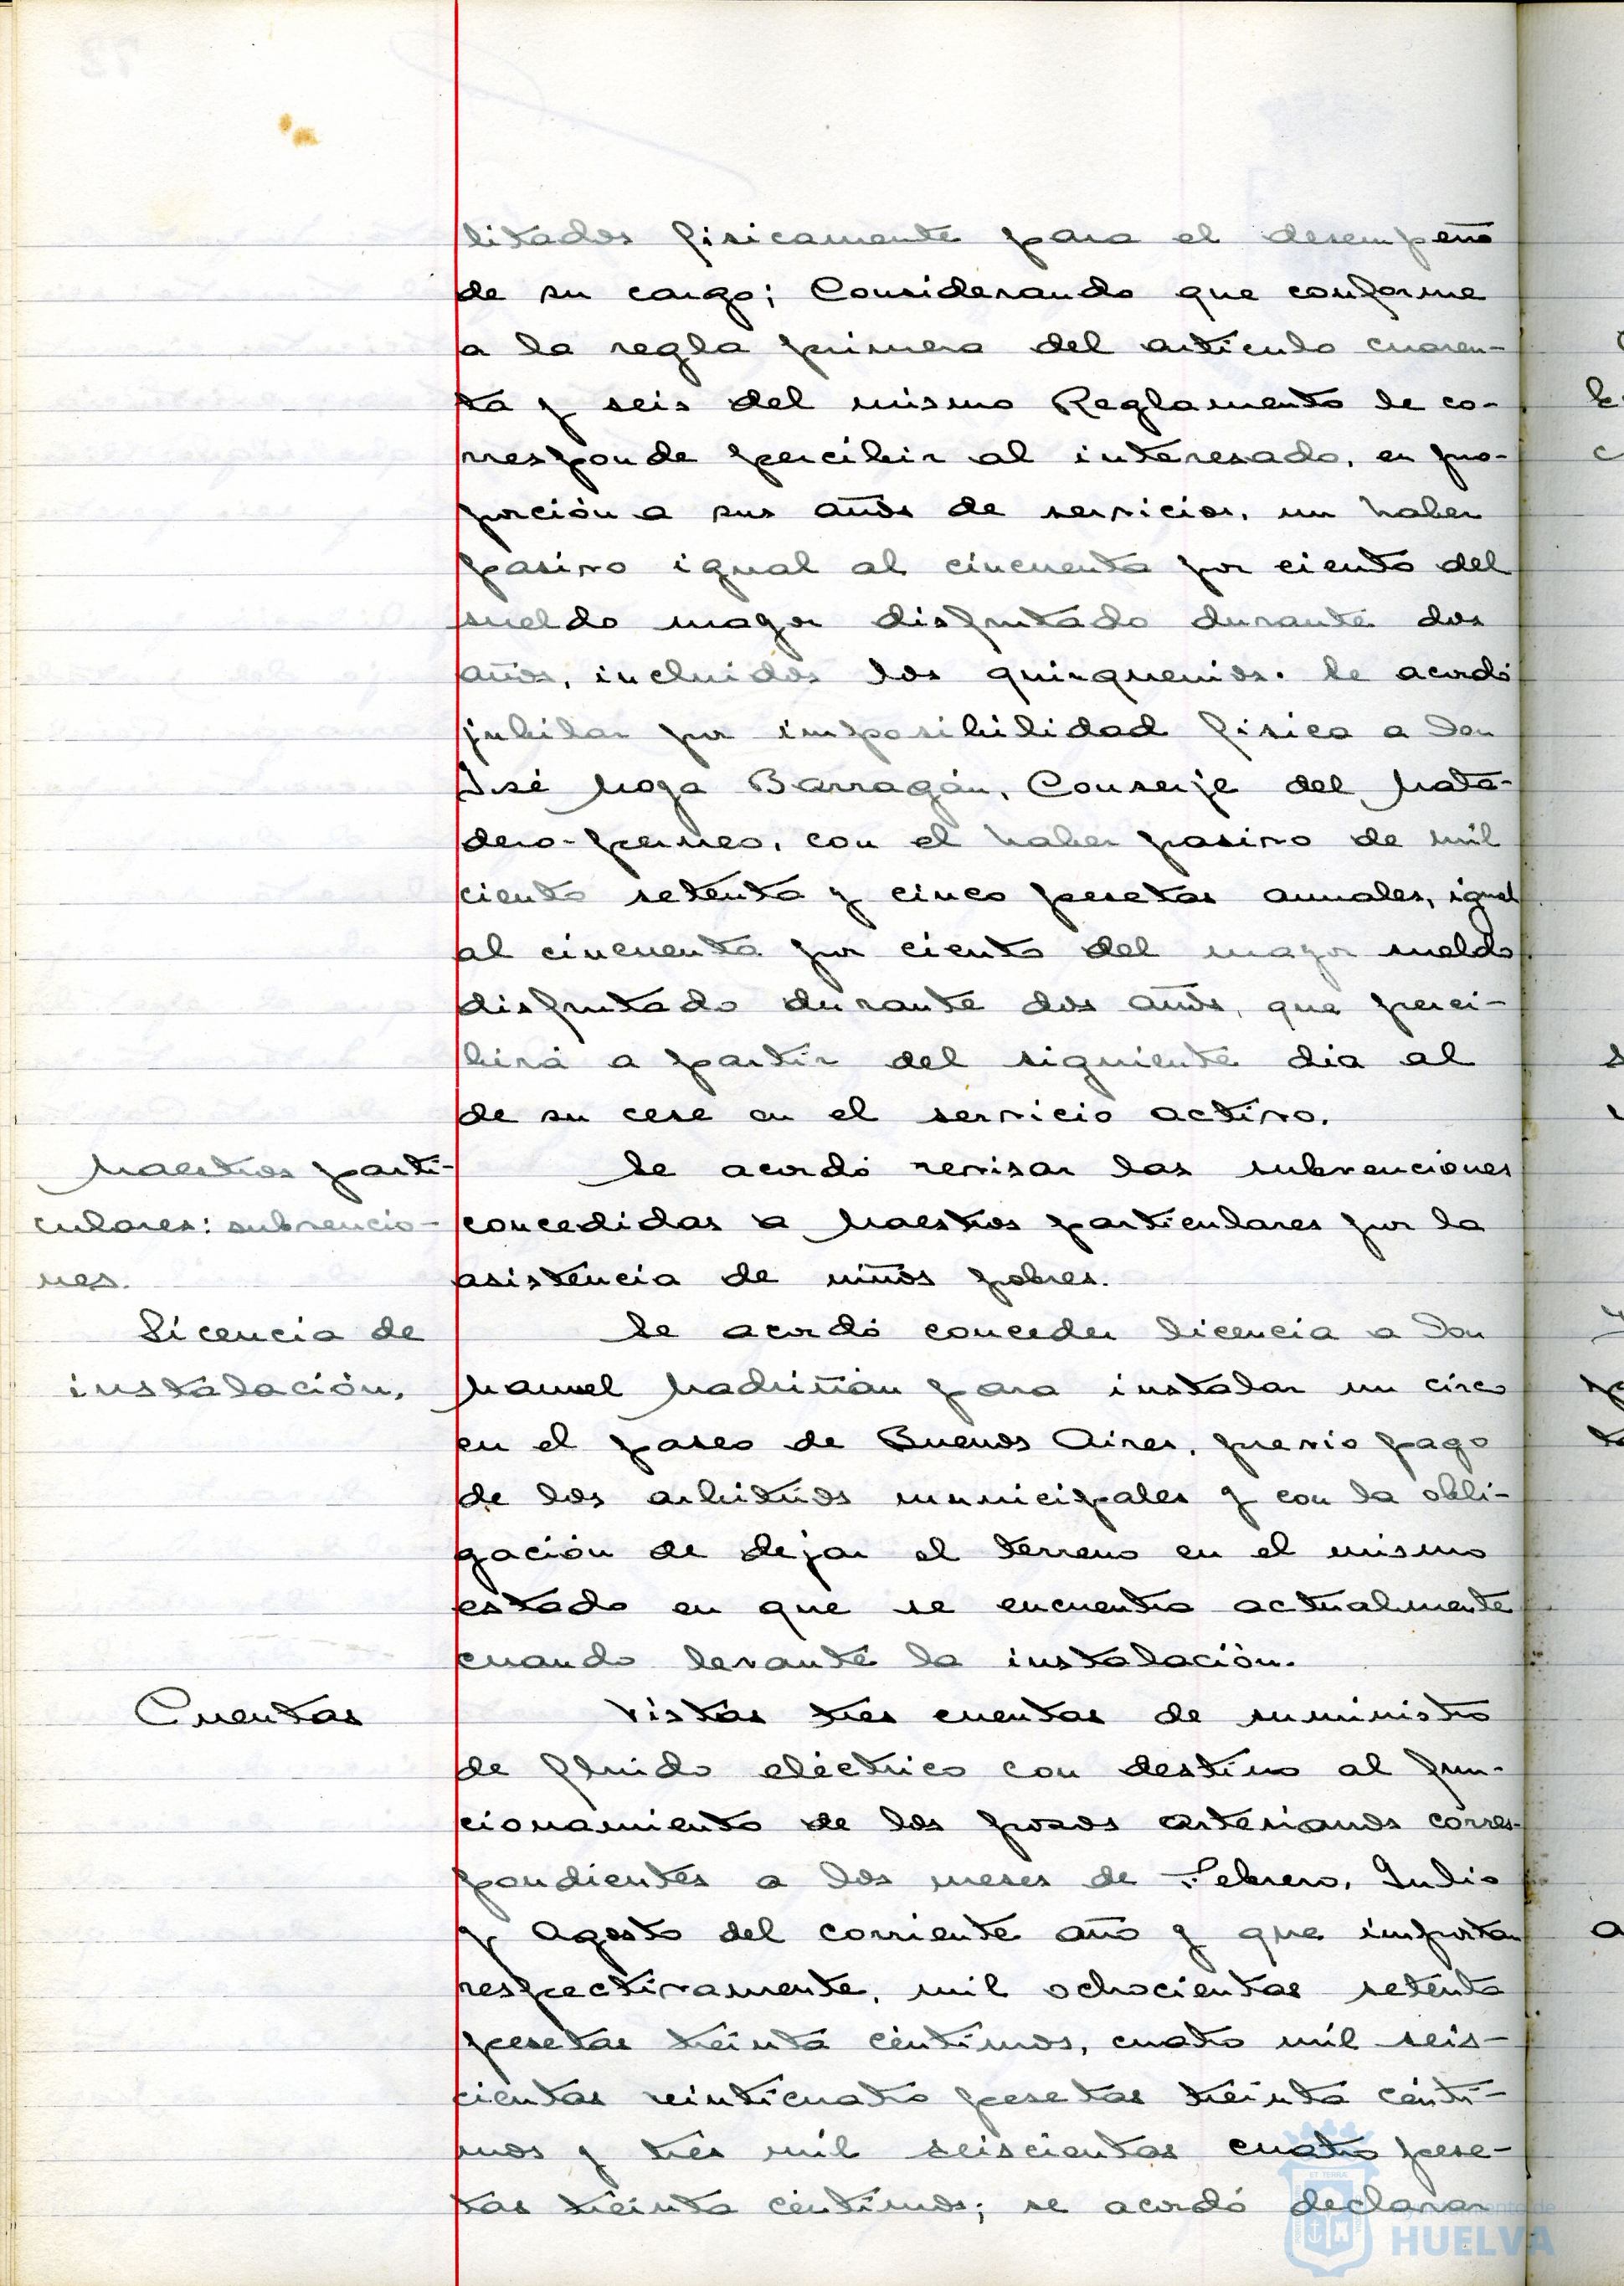 litados fisicamente para el desempeño
de su cargo; Considerando que conforme
a la regla primera del artículo cuaren-
ta y seis del mismo Reglamento le co-
rresponde percibir al interesado, en pro-
porción a sus años de servicios, un haber
pasivo igual al cincuenta por ciento del
sueldo mayor disfrutado durante dos
años, incluidos los quinquenios. Se acordó
jubilar por imposibilidad física a Don
José Moya Barragán, Conserje del Mata-
dero-perneo, con el haber pasivo de mil
ciento setenta y cinco pesetas anuales, igual
al cincuenta por ciento del mayor sueldo
disfrutado durante dos años, que perci-
birá a partir del siguiente dia al
de su cese en el servicio activo.
Maestros parti-
culares: subvencio-
nes.
Se acordó revisar las subvenciones
concedidas a Maestros particulares por la
asistencia de niños pobres.
Licencia de
instalación.
Se acordó conceder licencia a Don
Manuel Madriñan para instalar un circo
en el paseo de Buenos Aires, previo pago
de los arbitrios municipales y con la obli-
gación de dejar el terreno en el mismo
estado en que se encuentra actualmente
cuando levante la instalación.
Cuentas
Vistas tres cuentas de suministro
de fluido eléctrico con destino al fun-
cionamiento de los pozos artesianos corres-
pondientes a los meses de Febrero, Julio
y Agosto del corriente año y que importan
respectivamente, mil ochocientas setenta
pesetas treinta céntimos, cuatro mil seis-
cientas veinticuatro pesetas treinta cénti-
mos y tres mil seiscientas cuatro pese-
tas treinta céntimos; se acordó declarar
Ayuntamiento de
HUELVA